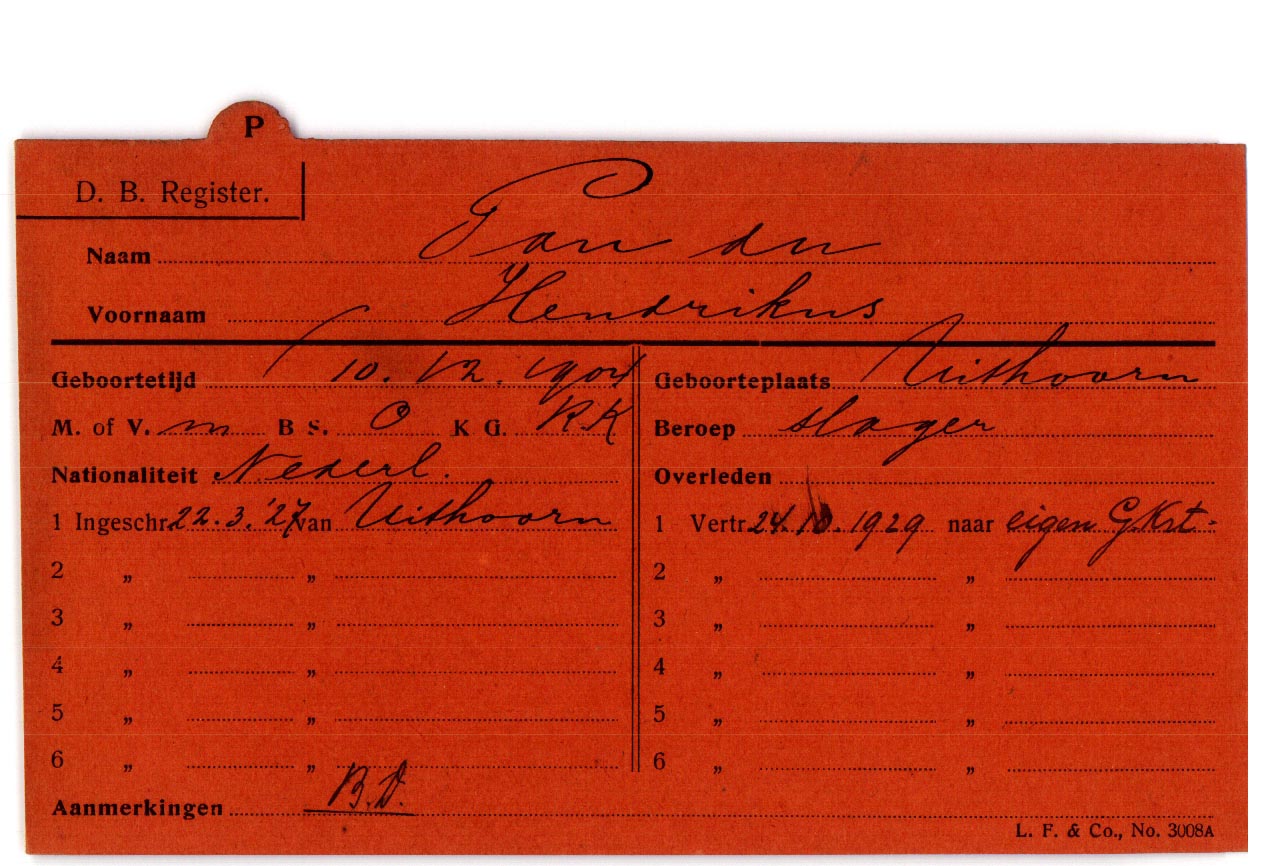 P
D. B. Register.
Naam Pan der
Voornaam Hendrikus
Geboortetijd 10. 12. 1904 Geboorteplaats Uithoorn
M. of V. m B S. O K G. R.K Beroep slager
Nationaliteit Nederl. Overleden
1 Ingeschr. 22.3.'27 van Uithoorn 1 Vertr. 24.10.1929 naar eigen G.Krt.
2 „ „ 2 „ „
3 „ „ 3 „ „
4 „ „ 4 „ „
5 „ „ 5 „ „
6 „ „ 6 „ „
Aanmerkingen B.D.
L. F. & Co., No. 3008A